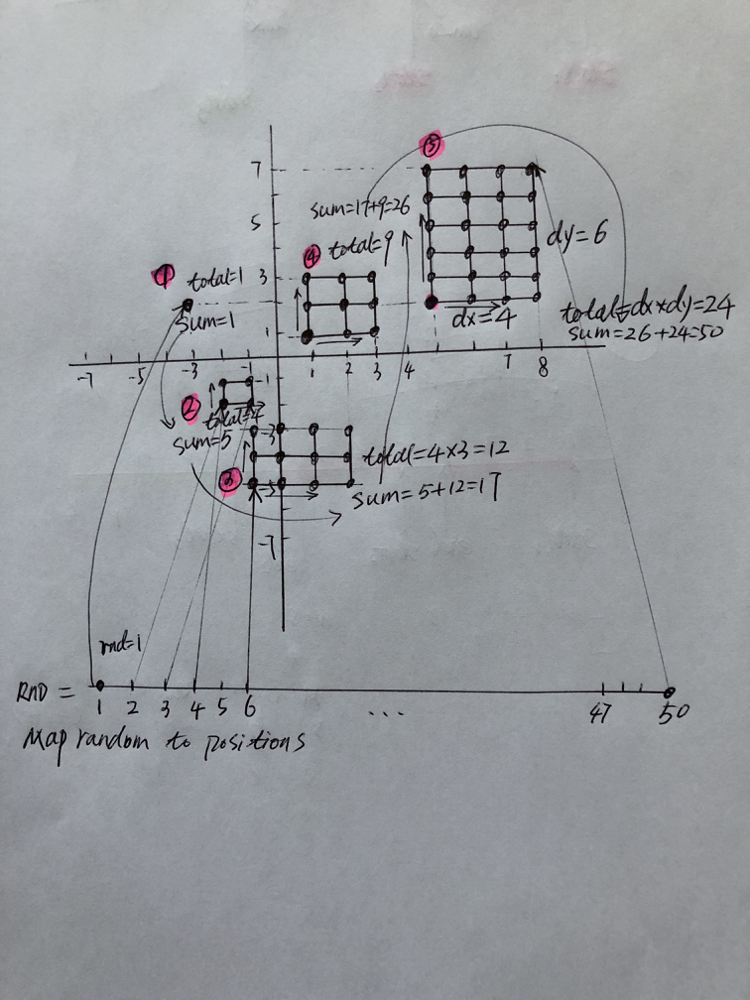 ⑤
7
sum=17+9=26
5
dy=6
④
total=9
①
total=1
3
sum=1
dx=4
total=dx×dy=24
sum=26+24=50
1
-7 -5 -3 -1 1 2 3 4 7 8
-1
②
total=4
sum=5
-3
③
total=4×3=12
-5
sum=5+12=17
-7
rnd=1
RND =
1 2 3 4 5 6 ... 47 50
Map random to positions